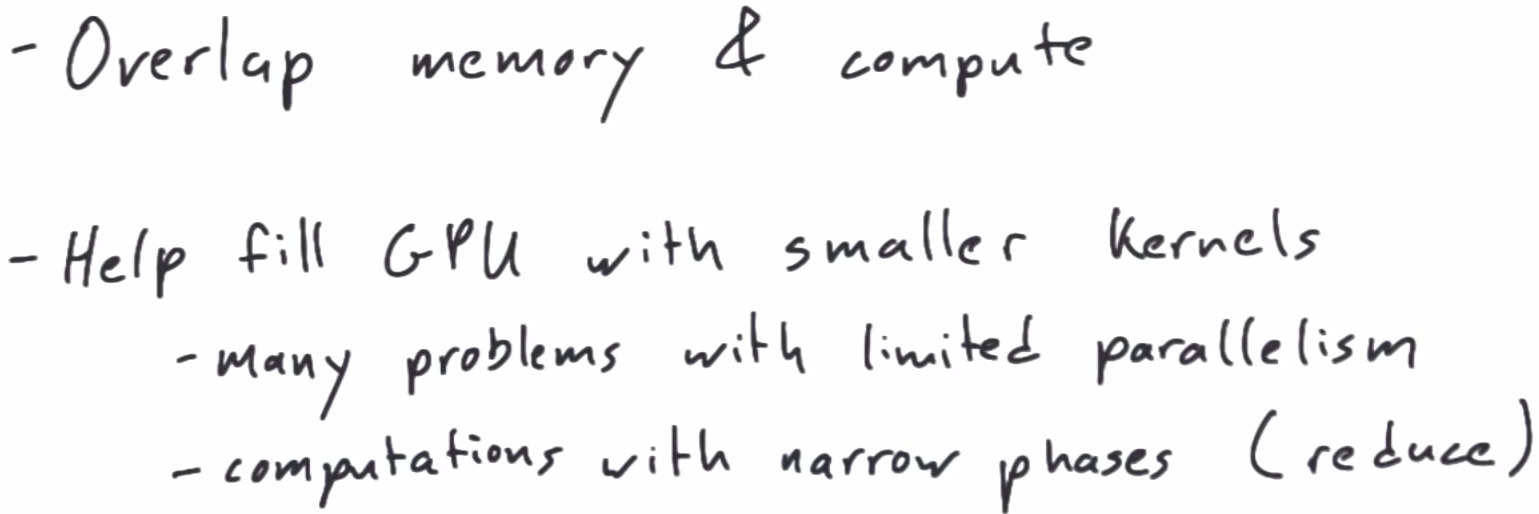 - Overlap memory & compute
- Help fill GPU with smaller kernels
- many problems with limited parallelism
- computations with narrow phases (reduce)